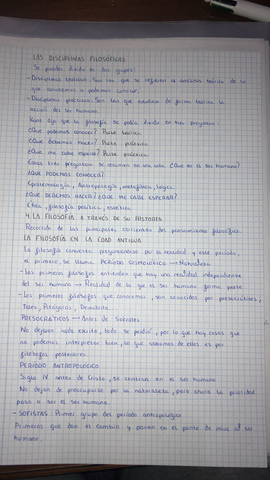 LAS DISCIPLINAS FILOSÓFICAS
Se pueden dividir en dos grupos:
- Disciplinas teóricas: Son las que se refieren al análisis teórico de lo
que conocemos o podemos conocer.
- Disciplinas prácticas: Son las que estudian de forma teórica la
acción del ser humano.
Kant dijo que la filosofía se podía dividir en tres preguntas:
¿Qué podemos conocer? Parte teórica
¿Qué debemos hacer? Parte práctica
¿Qué me cabe esperar? Parte práctica
Estas tres preguntas se resumen en una sola: ¿Qué es el ser humano?
¿QUÉ PODEMOS CONOCER?
Epistemología, Antropología, metafísica, lógica.
¿QUÉ DEBEMOS HACER? ¿QUÉ ME CABE ESPERAR?
Ética, filosofía política, estética.
4. LA FILOSOFÍA A TRAVÉS DE SU HISTORIA
Recorrido de las principales corrientes del pensamiento filosófico.
LA FILOSOFÍA EN LA EDAD ANTIGUA
La filosofía comienza preguntándose por la realidad y este período,
el primero, se llama: PERÍODO COSMOLÓGICO → Naturaleza
- Los primeros filósofos entienden que hay una realidad independiente
del ser humano → Realidad de la que el ser humano forma parte
- Los primeros filósofos que conocemos, son conocidos por presocráticos,
Tales, Pitágoras, Demócrito.
PRESOCRÁTICOS → Antes de Sócrates
No dejaron nada escrito, todo se perdió, por lo que hay cosas que
no podemos interpretar bien, lo que sabemos de ellos es por
filósofos posteriores.
PERÍODO ANTROPOLÓGICO
Siglo IV antes de Cristo, se centran en el ser humano
No dejan de preocuparse por la naturaleza, pero ahora la prioridad
pasa a ser el ser humano.
- SOFISTAS: Primer grupo del período antropológico
Primeros que dan el cambio y ponen en el punto de mira al ser
humano.